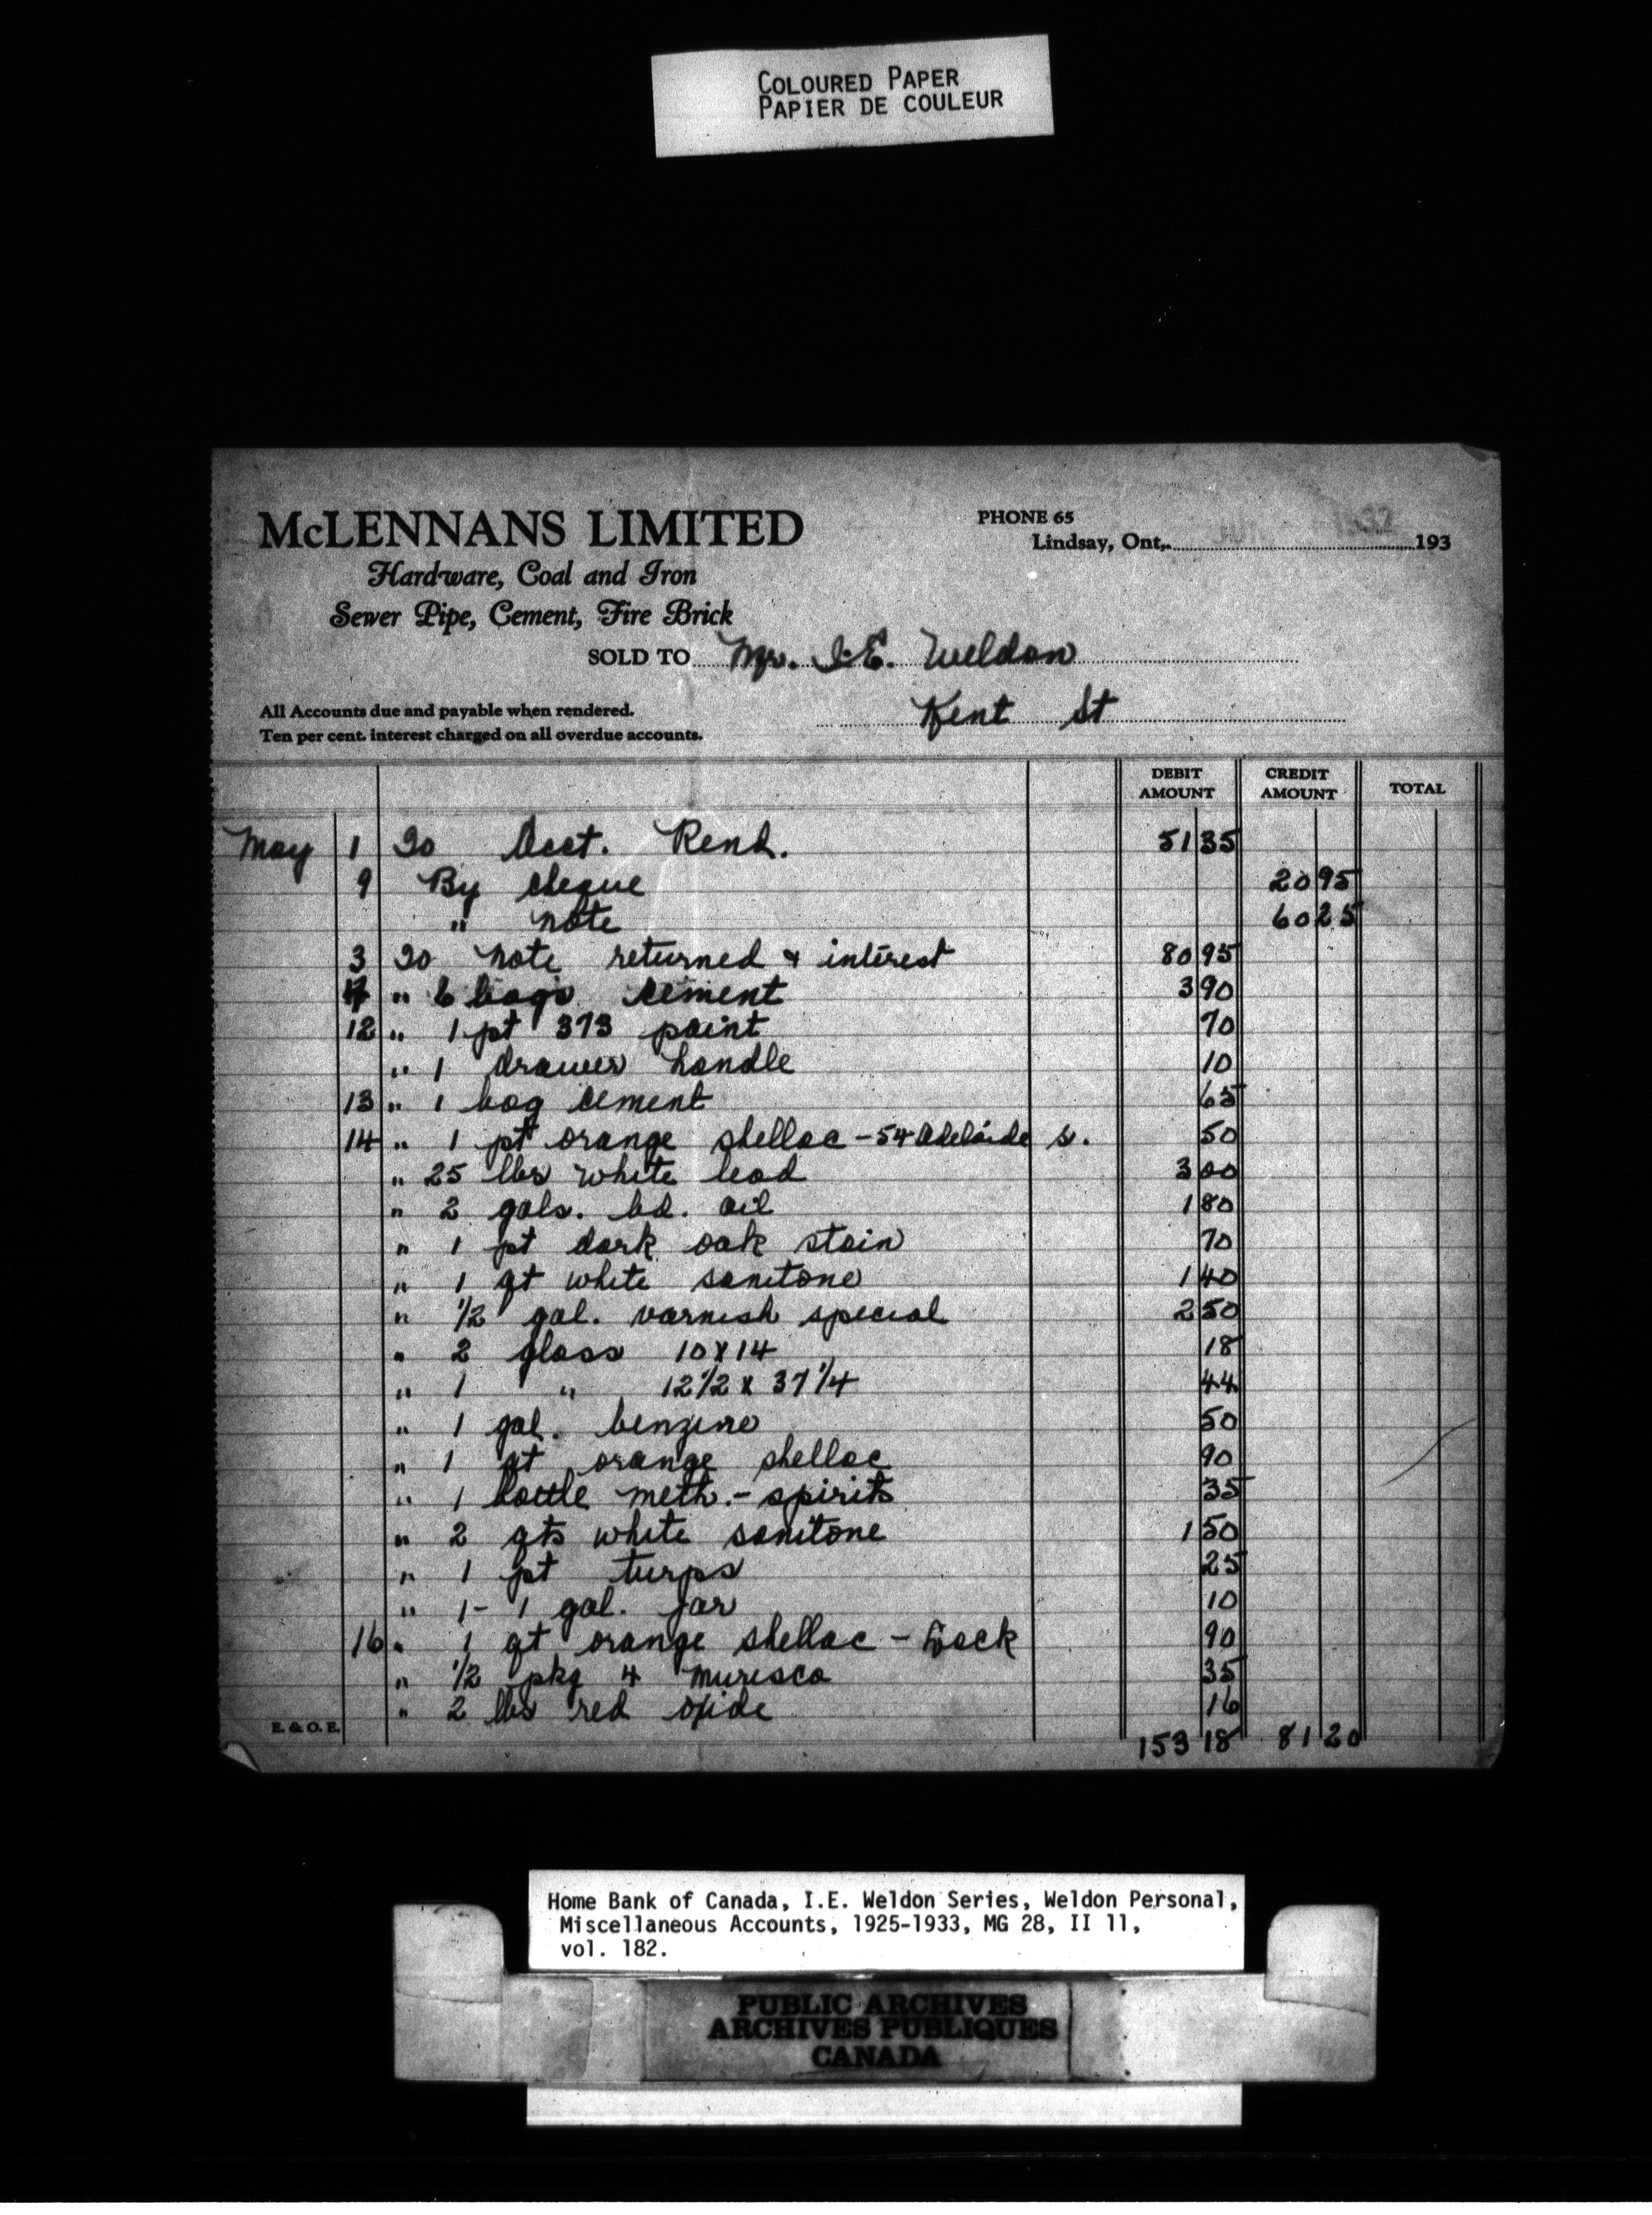 COLOURED PAPER
PAPIER DE COULEUR
McLENNANS LIMITED
Hardware, Coal and Iron
Sewer Pipe, Cement, Fire Brick
PHONE 65
Lindsay, Ont,. 1932 193
SOLD TO Mr. I.E. Weldon
Kent St
All Accounts due and payable when rendered.
Ten per cent. interest charged on all overdue accounts.
DEBIT AMOUNT CREDIT AMOUNT TOTAL
May 1 To Acct. Rend. 51 35
9 By cheque 20 95
" note 60 25
3 To note returned & interest 80 95
" 6 bags cement 3 90
12 " 1 pt 373 paint 70
" 1 drawer handle 10
13 " 1 bag cement 65
14 " 1 pt orange shellac - 54 Adelaide s. 50
" 25 lbs white lead 3 00
" 2 gals. bd. oil 1 80
" 1 pt dark oak stain 70
" 1 qt white sanitone 1 40
" 1/2 gal. varnish special 2 50
" 2 glass 10 x 14 18
" 1 " 12 1/2 x 37 1/4 44
" 1 gal. benzine 50
" 1 qt orange shellac 90
" 1 bottle meth. - spirits 35
" 2 qts white sanitone 1 50
" 1 pt turps 25
" 1 - 1 gal. jar 10
16 " 1 qt orange shellac - 90
" 1/2 pkg 4 muresco 35
" 2 lbs red oxide 16
E. & O. E.
153 18 81 20
Home Bank of Canada, I.E. Weldon Series, Weldon Personal,
Miscellaneous Accounts, 1925-1933, MG 28, II 11,
vol. 182.
PUBLIC ARCHIVES
ARCHIVES PUBLIQUES
CANADA